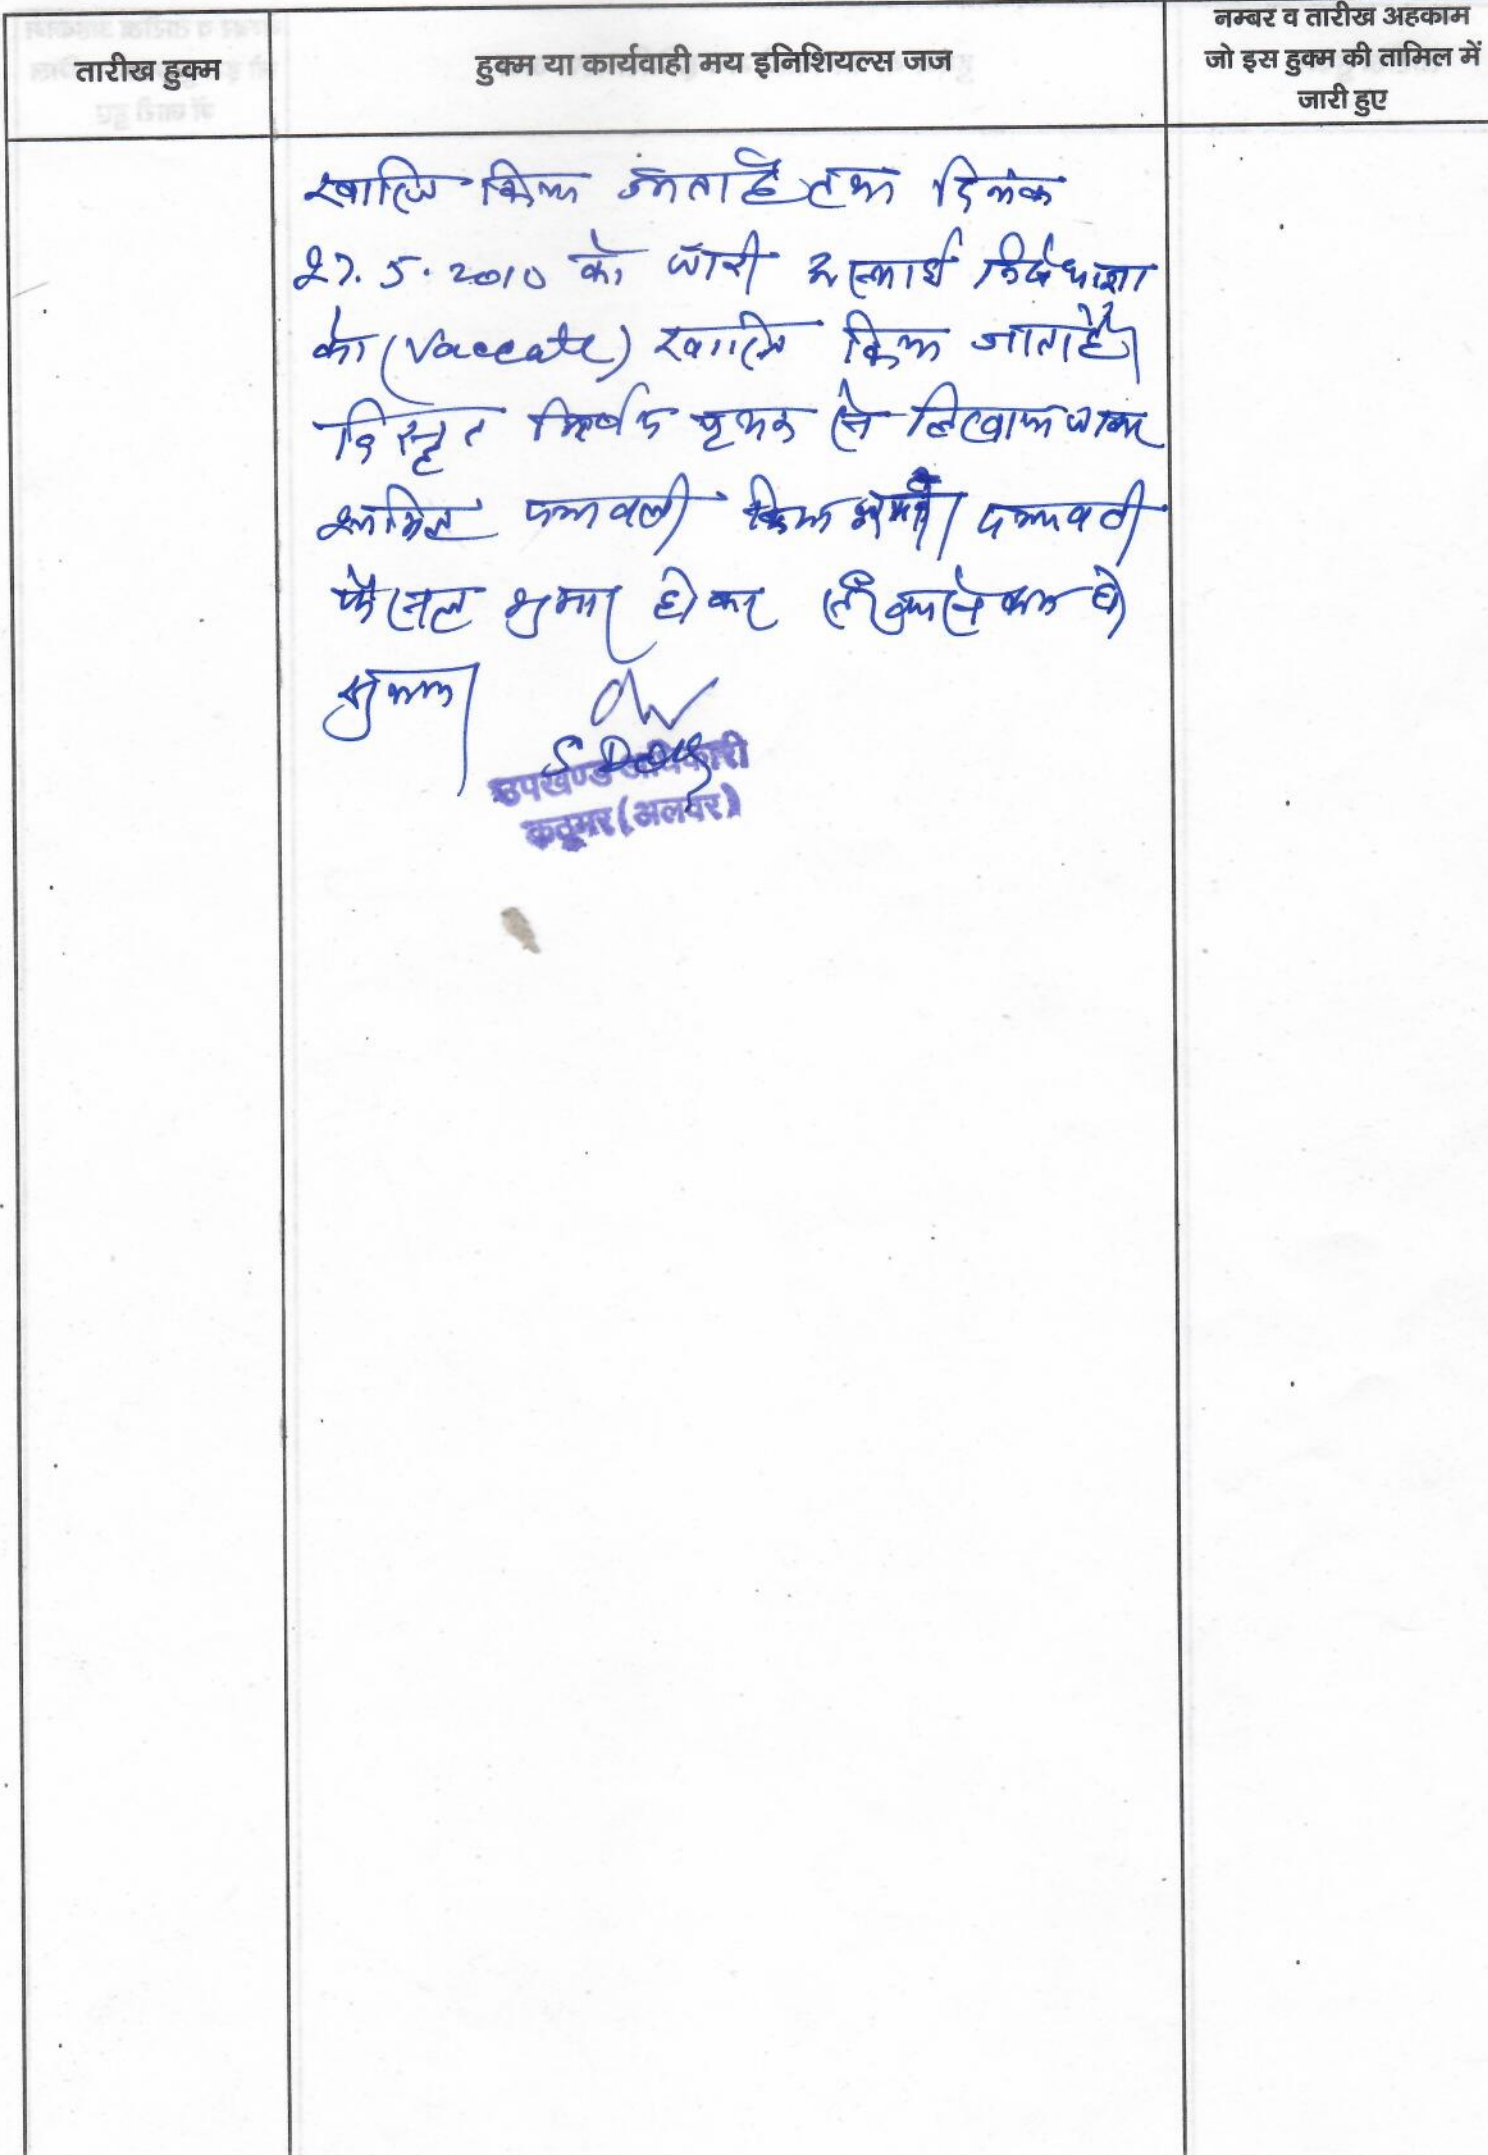 तारीख हुक्म
हुक्म या कार्यवाही मय इनिशियल्स जज
नम्बर व तारीख अहकाम
जो इस हुक्म की तामिल में
जारी हुए
खारिज किया जाता है तथा दिनांक
27.5.2010 को जारी अस्थाई निषेधाज्ञा
को (Vaccate) खारिज किया जाता है।
विस्तृत निर्णय पृथक से लिखाया जाकर
शामिल पत्रावली किया गया। पत्रावली
फैसल शुमार होकर
उपखण्ड अधिकारी
कठूमर (अलवर)